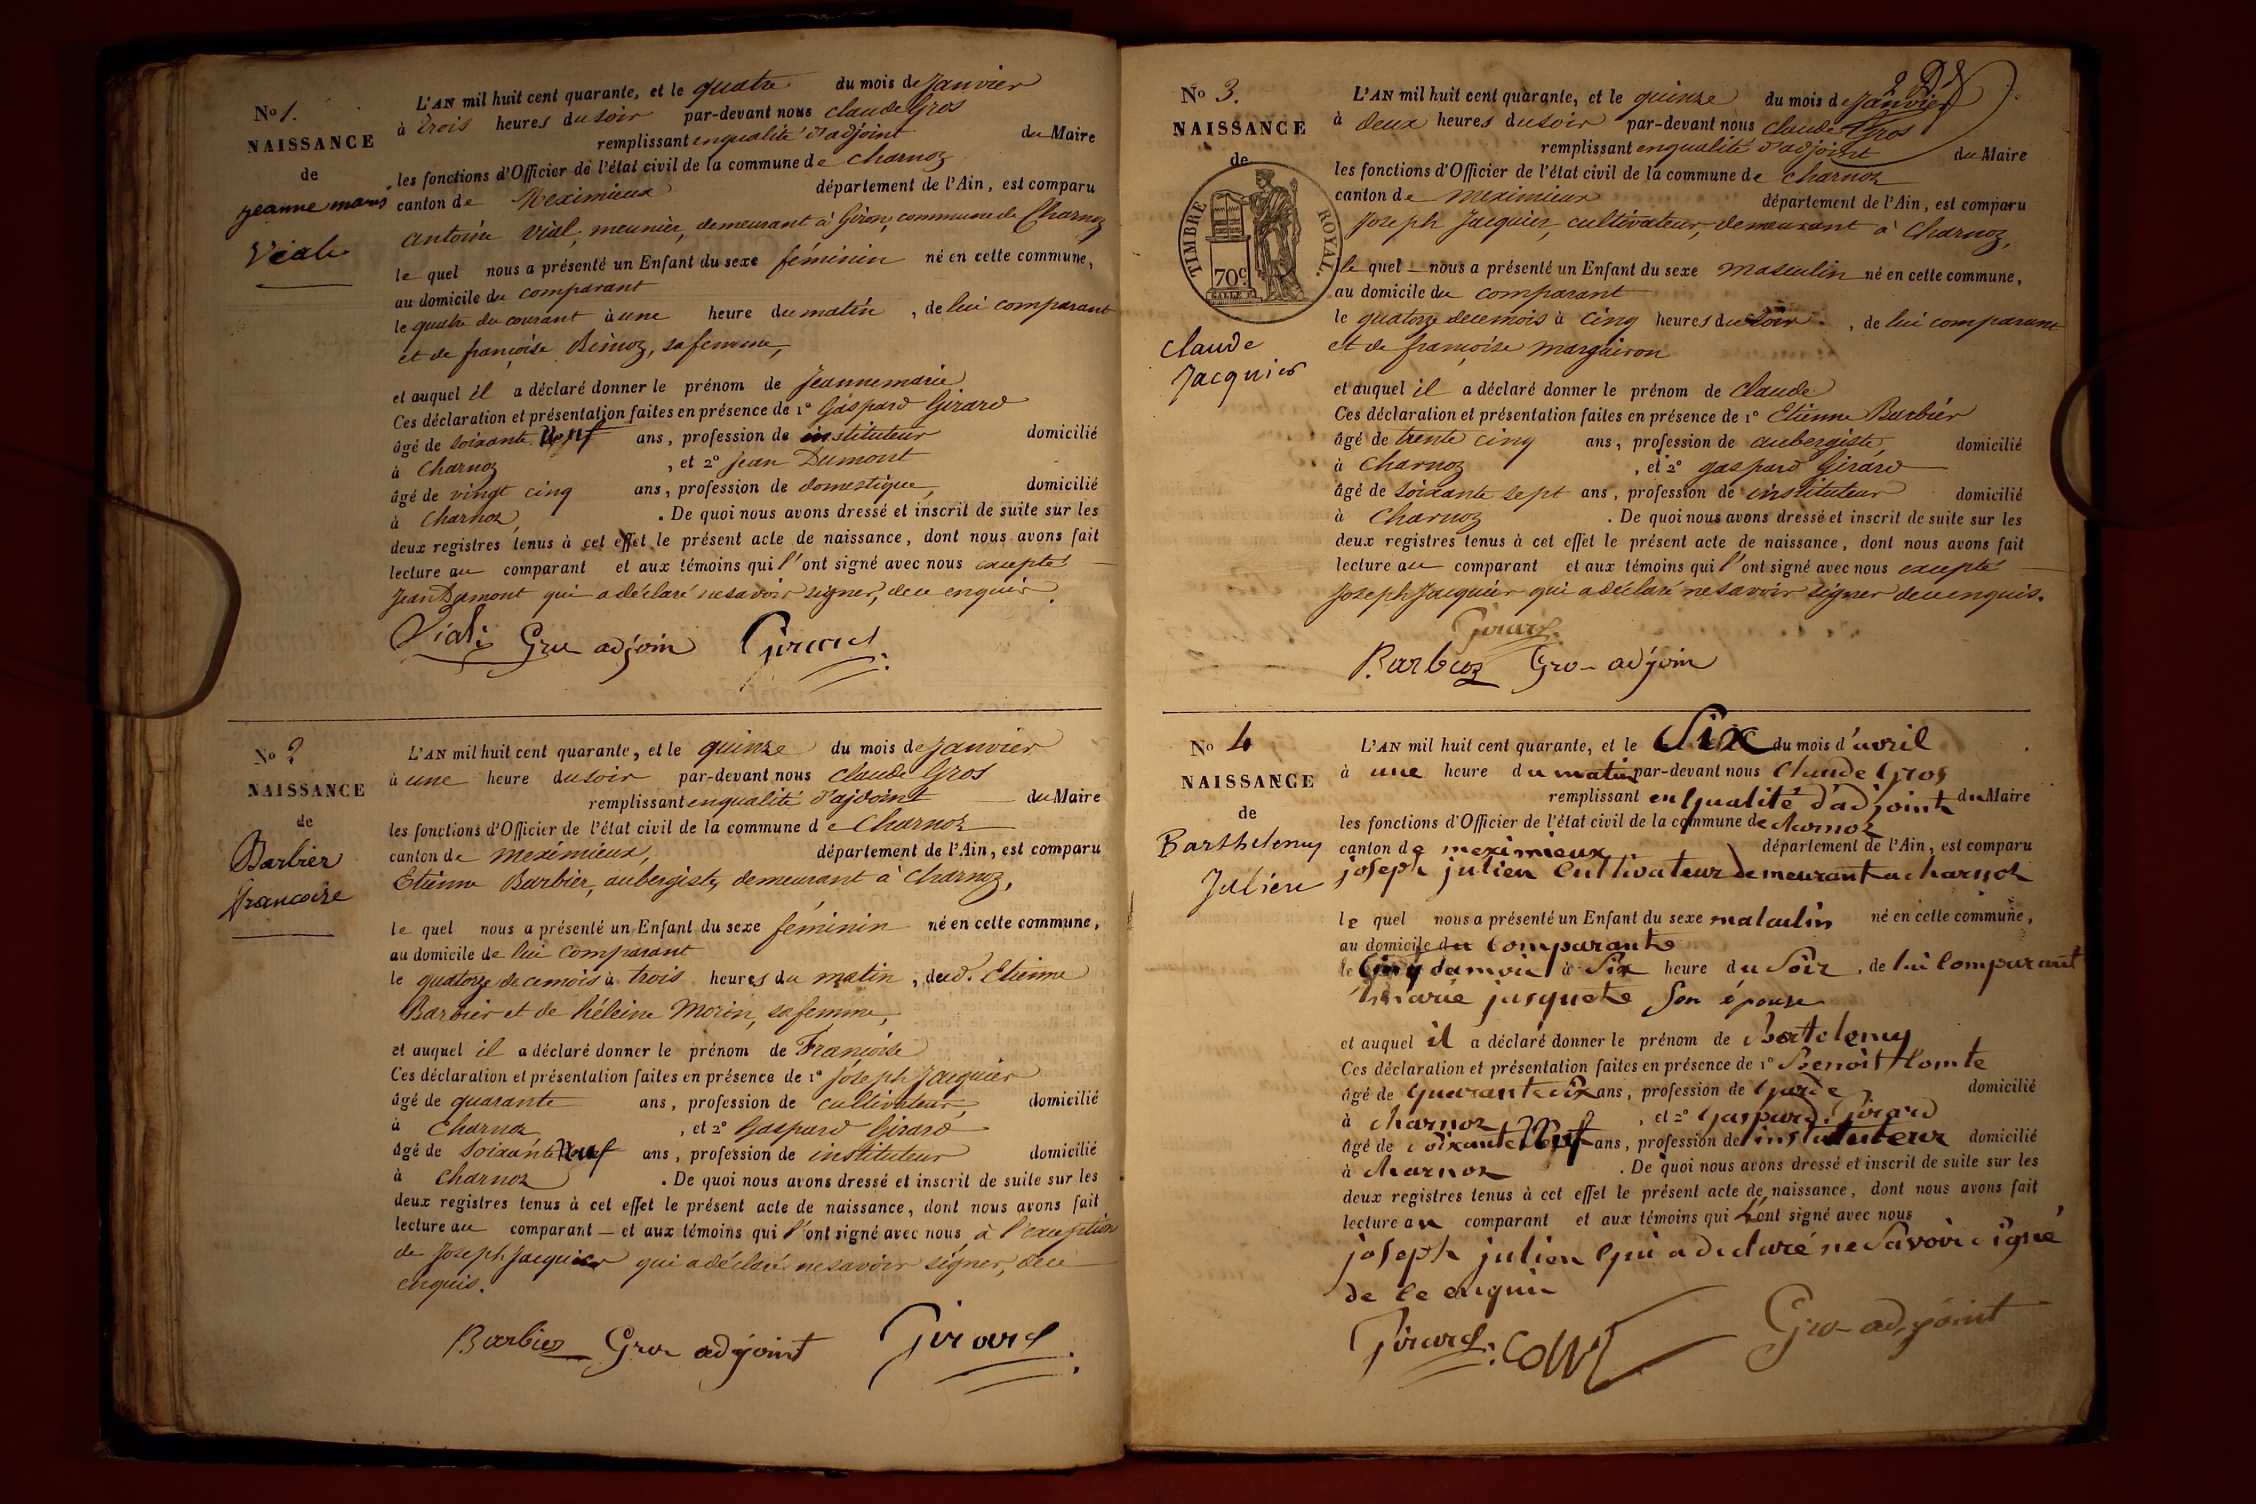 No 1.
NAISSANCE
de
jeanne marie
Viale
L'AN mil huit cent quarante, et le quatre du mois de Janvier
à trois heures du soir par-devant nous Claude Gros
remplissant en qualité d'adjoint du Maire
les fonctions d'Officier de l'état civil de la commune de Charnoz
canton de Meximieux département de l'Ain, est comparu
antoine Vial, meunier, demeurant à Giron, commune de Charnoz
le quel nous a présenté un Enfant du sexe féminin né en cette commune,
au domicile du comparant
le quatre du courant à une heure du matin, de lui comparant
et de françoise, sa femme,
et auquel il a déclaré donner le prénom de Jeannemarie
Ces déclaration et présentation faites en présence de 1° Gaspard Girard
âgé de soixante neuf ans, profession de instituteur domicilié
à Charnoz, et 2° Jean Dumont
âgé de vingt cinq ans, profession de domestique, domicilié
à Charnoz. De quoi nous avons dressé et inscrit de suite sur les
deux registres tenus à cet effet le présent acte de naissance, dont nous avons fait
lecture au comparant et aux témoins qui l'ont signé avec nous excepté
Jean Dumont qui a déclaré ne savoir signer, de ce enquis.
Viale Gro adjoin Girard
No 2
NAISSANCE
de
Barbier
francoise
L'AN mil huit cent quarante, et le quinze du mois de Janvier
à une heure du soir par-devant nous Claude Gros
remplissant en qualité d'ajdoint du Maire
les fonctions d'Officier de l'état civil de la commune de Charnoz
canton de Meximieux, département de l'Ain, est comparu
Etienne Barbier, aubergiste, demeurant à Charnoz,
le quel nous a présenté un Enfant du sexe féminin né en cette commune,
au domicile de lui comparant
le quatorze de ce mois à trois heures du matin, dud. Etienne
Barbier et de héleine Morin, sa femme,
et auquel il a déclaré donner le prénom de Françoise
Ces déclaration et présentation faites en présence de 1° Joseph Jacquier
âgé de quarante ans, profession de cultivateur, domicilié
à Charnoz, et 2° Gaspard Girard
âgé de soixante neuf ans, profession de instituteur domicilié
à Charnoz. De quoi nous avons dressé et inscrit de suite sur les
deux registres tenus à cet effet le présent acte de naissance, dont nous avons fait
lecture au comparant et aux témoins qui l'ont signé avec nous à l'exception
de Joseph Jacquier qui a déclaré ne savoir signer, de ce
enquis.
Barbier Gro adjoint Girard
No 3.
NAISSANCE
de
TIMBRE ROYAL.
70c
claude
Jacquier
L'AN mil huit cent quarante, et le quinze du mois de Janvier
à deux heures du soir par-devant nous Claude Gros
remplissant en qualité d'adjoint du Maire
les fonctions d'Officier de l'état civil de la commune de Charnoz
canton de Meximieux département de l'Ain, est comparu
Joseph Jacquier, cultivateur, demeurant à Charnoz,
le quel nous a présenté un Enfant du sexe masculin né en cette commune,
au domicile du comparant
le quatorze de ce mois à cinq heures du soir, de lui comparant
et de françoise Marguiron
et auquel il a déclaré donner le prénom de Claude
Ces déclaration et présentation faites en présence de 1° Etienne Barbier
âgé de trente cinq ans, profession de aubergiste, domicilié
à Charnoz, et 2° gaspard Girard
âgé de soixante sept ans, profession de instituteur domicilié
à Charnoz. De quoi nous avons dressé et inscrit de suite sur les
deux registres tenus à cet effet le présent acte de naissance, dont nous avons fait
lecture au comparant et aux témoins qui l'ont signé avec nous excepté
Joseph Jacquier qui a déclaré ne savoir signer de ce enquis.
Girard.
Barbier Gro adjoin
No 4
NAISSANCE
de
Barthelemy
Julien
L'AN mil huit cent quarante, et le Six du mois d'avril
à une heure du matin par-devant nous Claude Gros
remplissant en qualité d'adjoint du Maire
les fonctions d'Officier de l'état civil de la commune de charnoz
canton de meximieux département de l'Ain, est comparu
joseph julien Cultivateur demeurant a charnoz
le quel nous a présenté un Enfant du sexe masculin né en cette commune,
au domicile du Comparant
le Cinq du mois à Six heure du Soir, de lui Comparant
marie jusquete Son épouse
et auquel il a déclaré donner le prénom de Bartelemy
Ces déclaration et présentation faites en présence de 1° Benoit Comte
âgé de quarante six ans, profession de Garde domicilié
à charnoz, et 2° Gaspard Girard
âgé de soixante Neuf ans, profession de instituteur domicilié
à charnoz. De quoi nous avons dressé et inscrit de suite sur les
deux registres tenus à cet effet le présent acte de naissance, dont nous avons fait
lecture au comparant et aux témoins qui l'ont signé avec nous
joseph julien qui a declaré ne Savoir signé
de ce enquis
Girard. Comte Gro adjoint